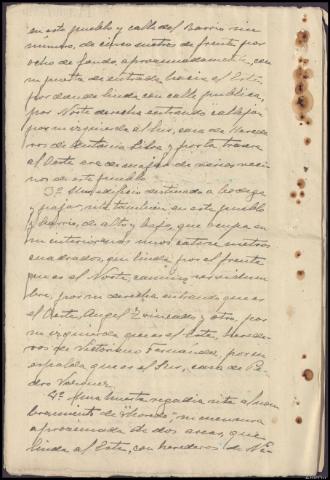 en este pueblo y calle del Barrio sin
número, de cinco metros de frente por
ocho de fondo aproximadamente, con
su puerta de entrada hacia el Este,
por donde linda con calle pública,
por Norte derecha entrando callejón
por su izquierda al Sur, casa de herede
ros de Antonia Silva y por la trasera
al Oeste era de majar de varios veci
nos de este pueblo
3ª Un edificio destinado a bodega
y pajar, sito también en este pueblo
y Barrio, de alto y bajo, que ocupa en
su interior unos catorce metros
cuadrados, que linda por el frente
que es el Norte, camino servidum
bre, por su derecha entrando que es
el Oeste, Angel Trincado y otro, por
su izquierda que es el Este, herede
ros de Victoriano Fernandez, por su
espalda que es el Sur, casa de Pe
dro
4ª Una huerta regadía sita al nom
bramiento de, su mensura
aproximada de dos areas, que
linda al Este, con herederos de